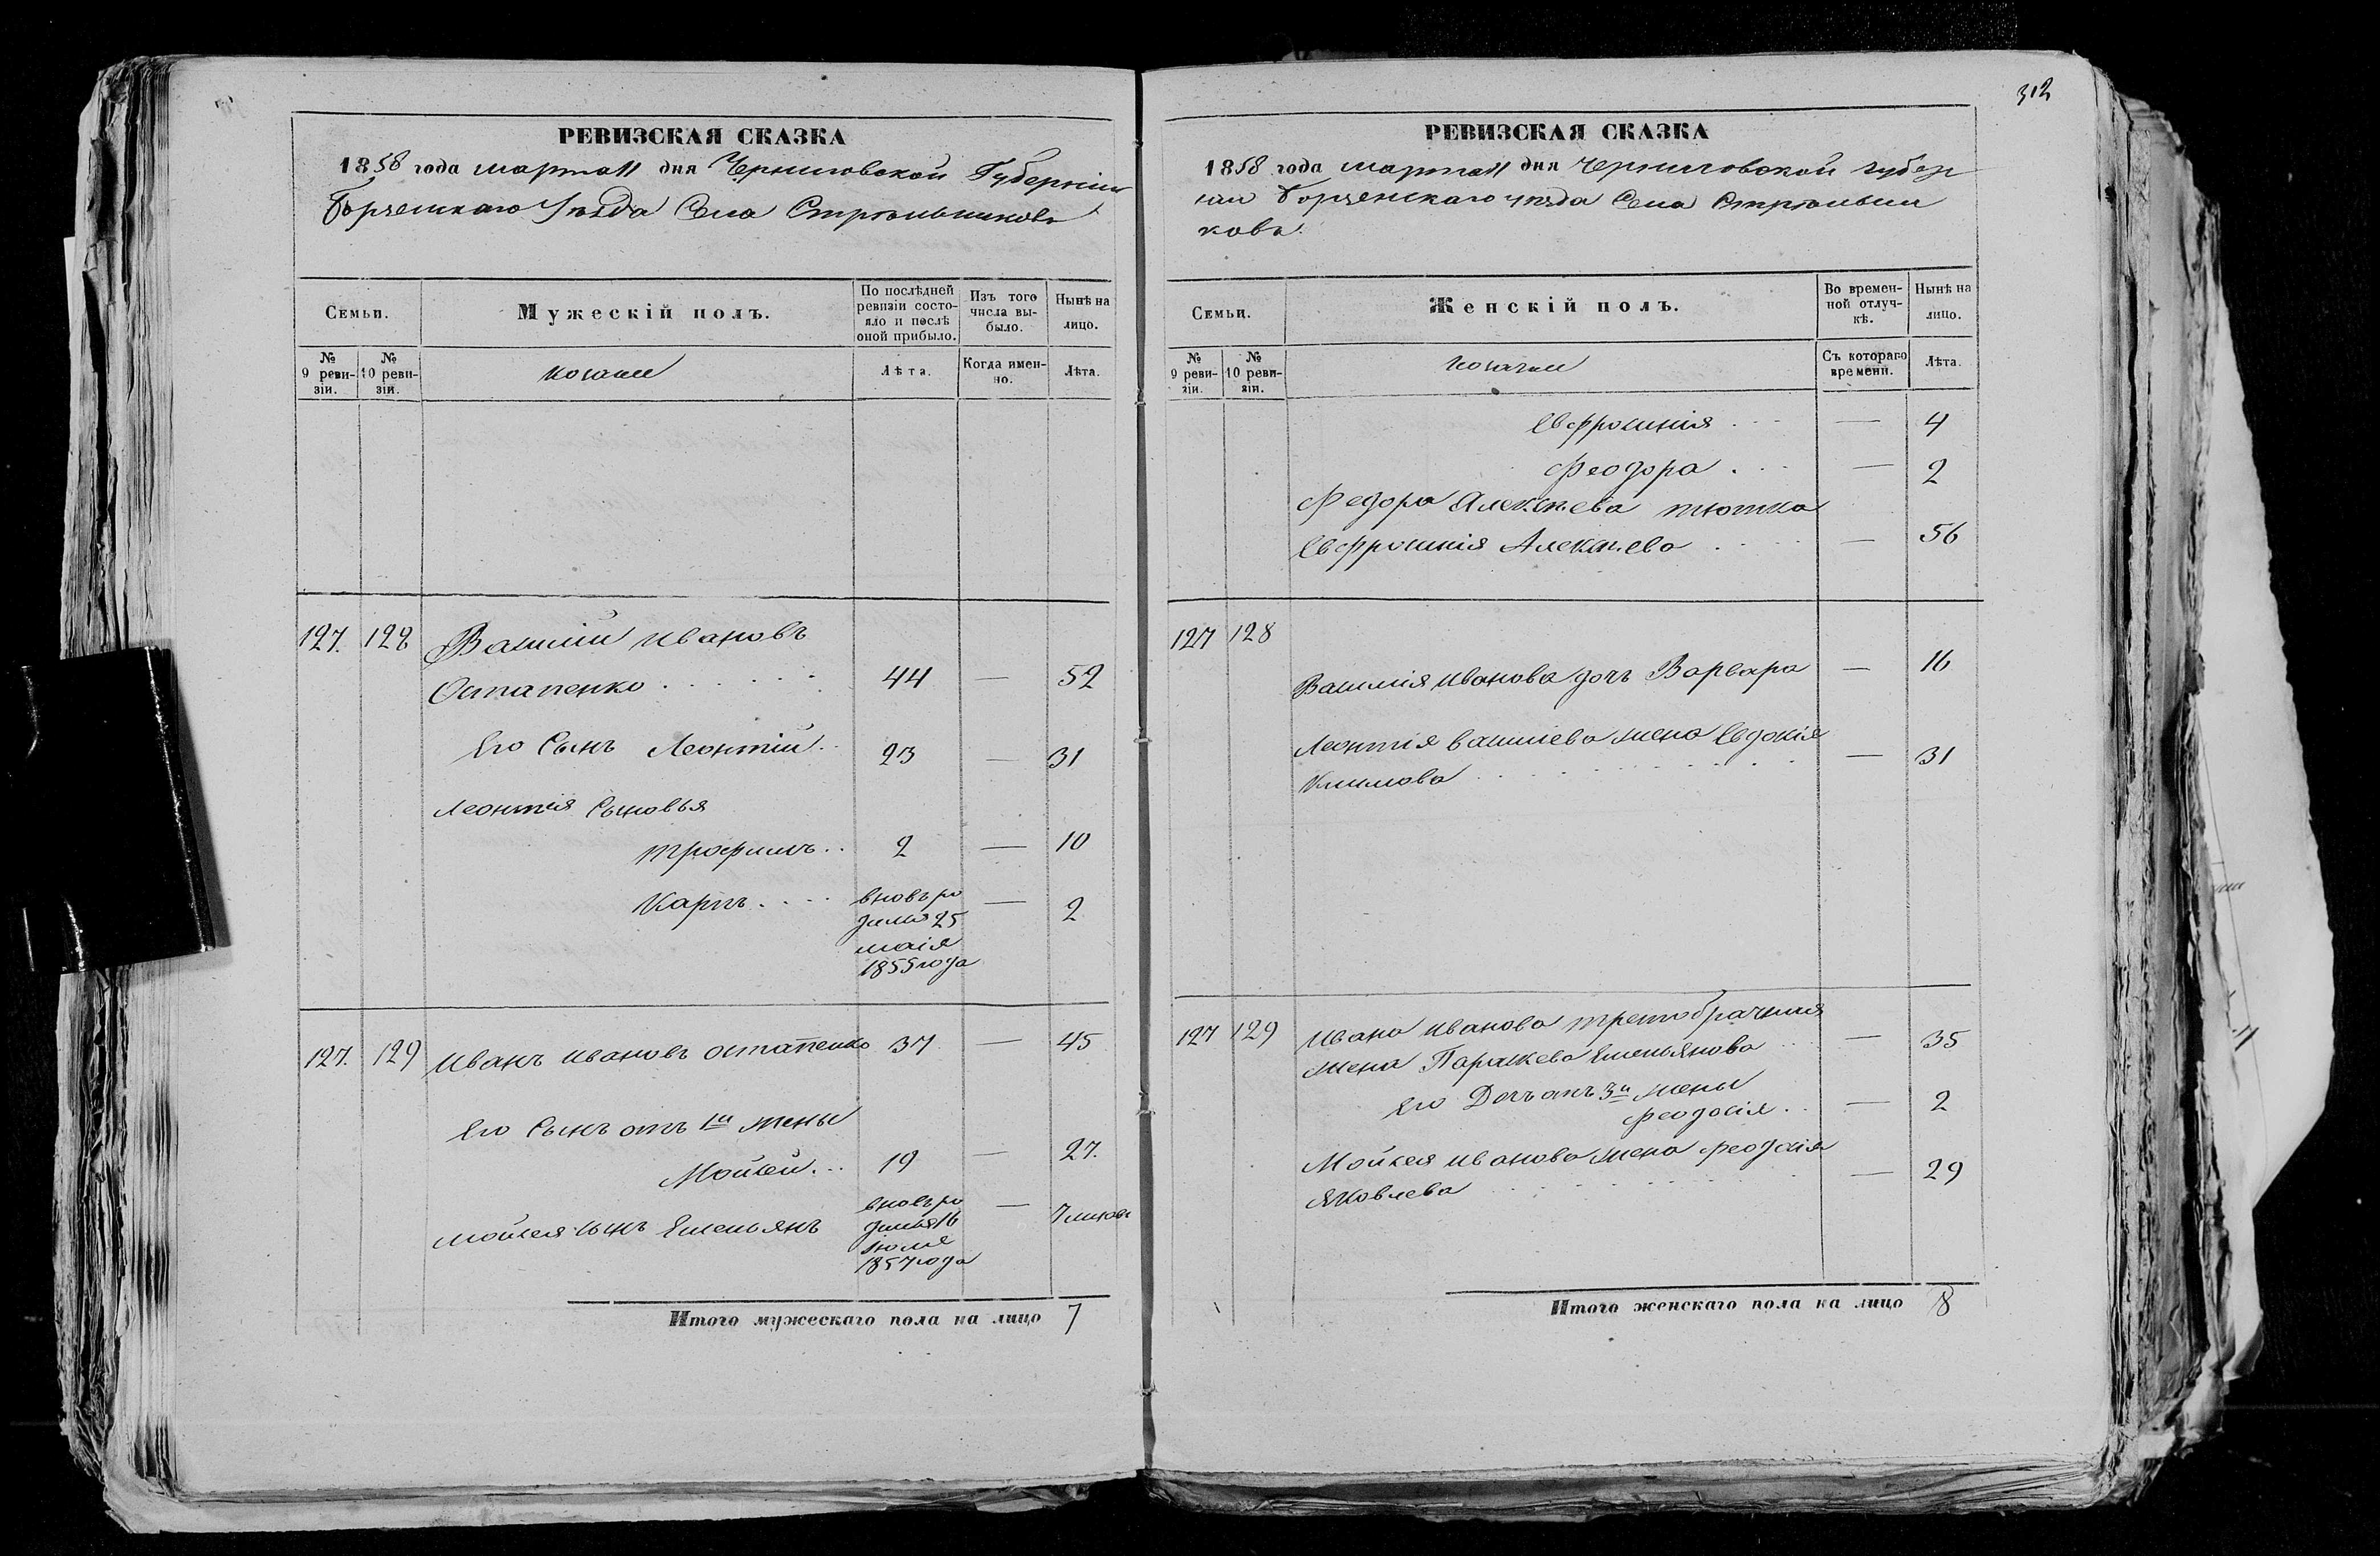 312
РЕВИЗСКАЯ СКАЗКА
1858 года марта 11 дня Черниговской Губерніи
Борзенскаго Уѣзда Села Стрѣльниковъ
Семьи.
Мужескій полъ.
По послѣдней ревизіи состояло и послѣ оной прибыло.
Изъ того числа выбыло.
Нынѣ на лицо.
№ 9 ревизіи.
№ 10 ревизіи.
козаки
Лѣта.
Когда именно.
Лѣта.
127. 128 Василій Ивановъ
Остапенко . . . . . . 44 — 52
Его Сынъ Леонтій . . 23 — 31
Леонтія Сыновья
Трофимъ . . 2 — 10
Карпъ . . . . вновь ро — 2
дился 25
маія
1855 года
127. 129 Иванъ Ивановъ Остапенко 37 — 45
Его Сынъ отъ 1й жены
Мойсей . . . 19 — 27.
Мойсея сынъ Емельянъ вновь ро — 7 мѣсов
дился 16
іюля
1857 года
Итого мужескаго пола на лицо 7
РЕВИЗСКАЯ СКАЗКА
1858 года марта 11 дня Черниговской губер
ніи Борзенскаго уѣзда Села Стрѣльни
ковъ.
Семьи.
Женскій полъ.
Во временной отлучкѣ.
Нынѣ на лицо.
№ 9 ревизіи.
№ 10 ревизіи.
козачки
Съ котораго времени.
Лѣта.
Евфросинія . . . — 4
Феодора . . . — 2
Федора Алексѣева тютка
Евфросинія Алексѣева . . . . — 56
127 128
Василія Иванова дочь Варвара — 16
Леонтія Василіева жена Евдокія
Климова . . . . . . . . . — 31
127 129 Ивана Иванова третобрачная
жена Параскева Емельянова . . — 35
Его Дочь отъ 3й жены
Феодосія . . — 2
Мойсея Иванова жена Феодосія
Яковлева . . . . . . . . — 29
Итого женскаго пола на лицо 8